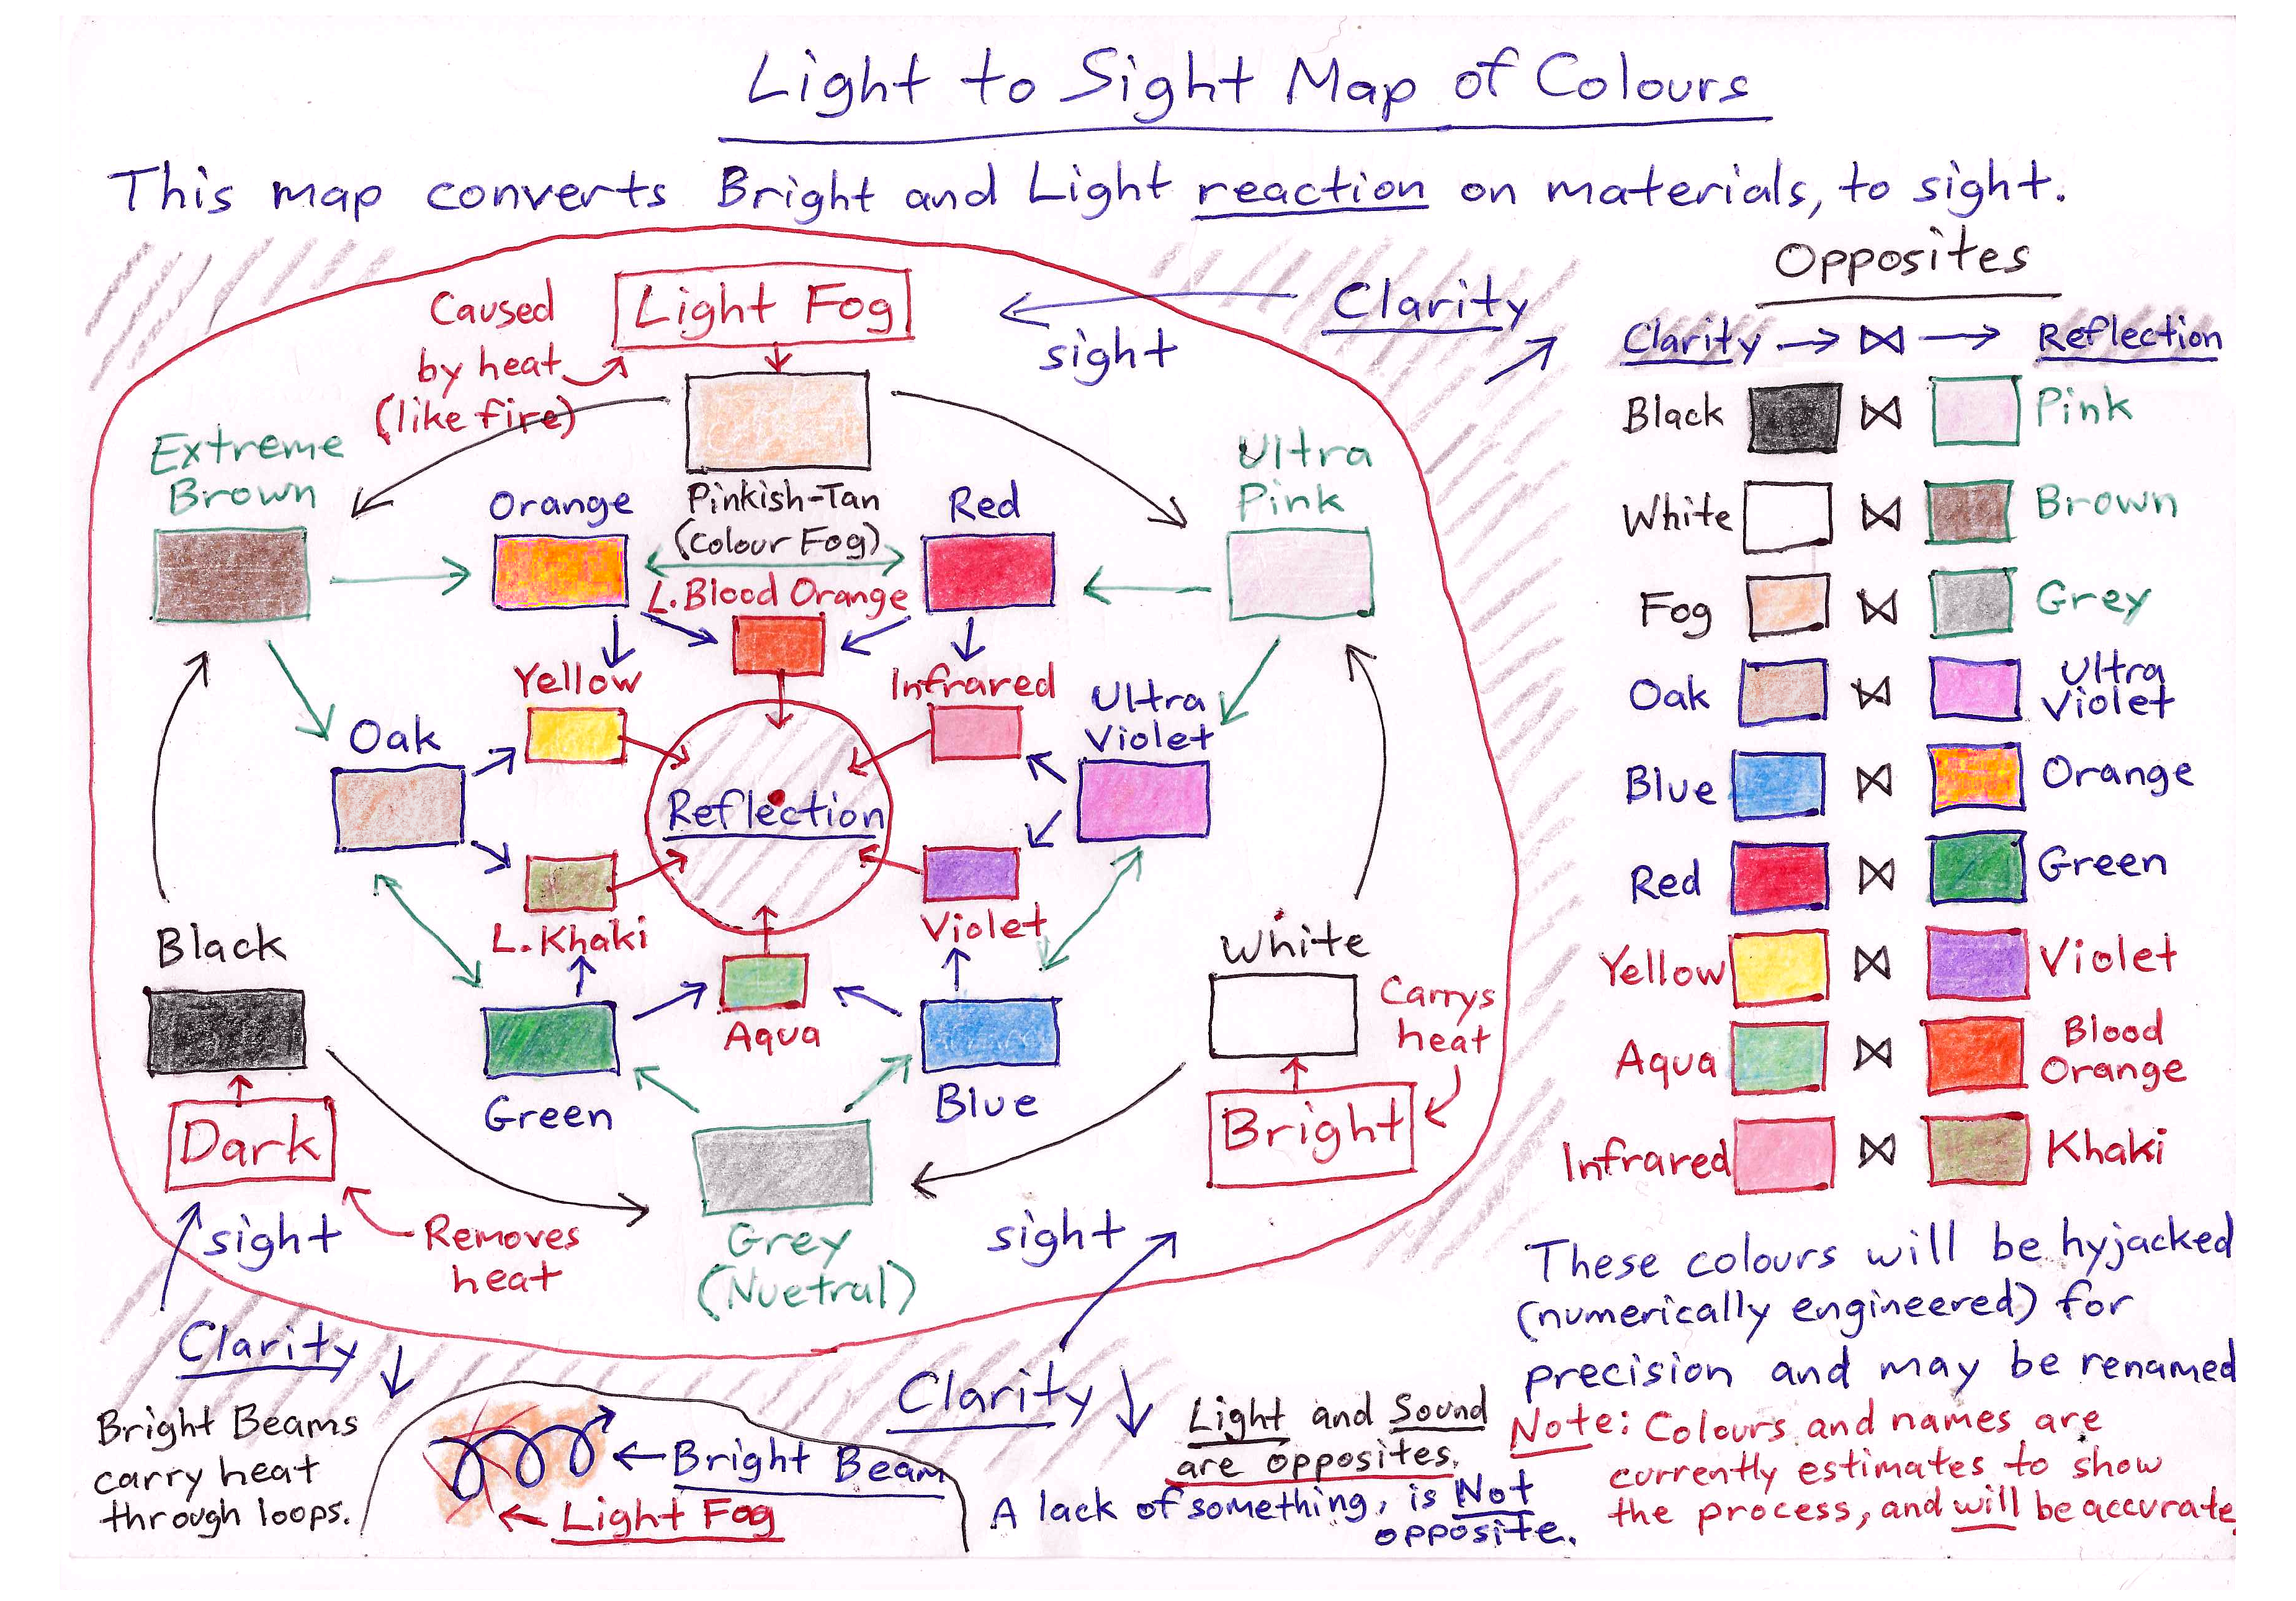 Light to Sight Map of Colours
This map converts Bright and Light reaction on materials, to sight.
Caused
by heat
(like fire)
Light Fog
sight
Clarity
Extreme
Brown
Orange
Pinkish-Tan
(Colour Fog)
Red
Ultra
Pink
L. Blood Orange
Yellow
Infrared
Oak
Ultra
Violet
Reflection
L. Khaki
Violet
Black
Aqua
White
Carrys
heat
Dark
Green
Blue
Bright
sight
Removes
heat
Grey
(Nuetral)
sight
Clarity
Clarity
Bright Beams
carry heat
through loops.
Bright Beam
Light Fog
Light and Sound
are opposites.
A lack of something, is Not
opposite.
Opposites
Clarity → ⋈ → Reflection
Black ⋈ Pink
White ⋈ Brown
Fog ⋈ Grey
Oak ⋈ Ultra
Violet
Blue ⋈ Orange
Red ⋈ Green
Yellow ⋈ Violet
Aqua ⋈ Blood
Orange
Infrared ⋈ Khaki
These colours will be hyjacked
(numerically engineered) for
precision and may be renamed
Note: Colours and names are
currently estimates to show
the process, and will be accurate.